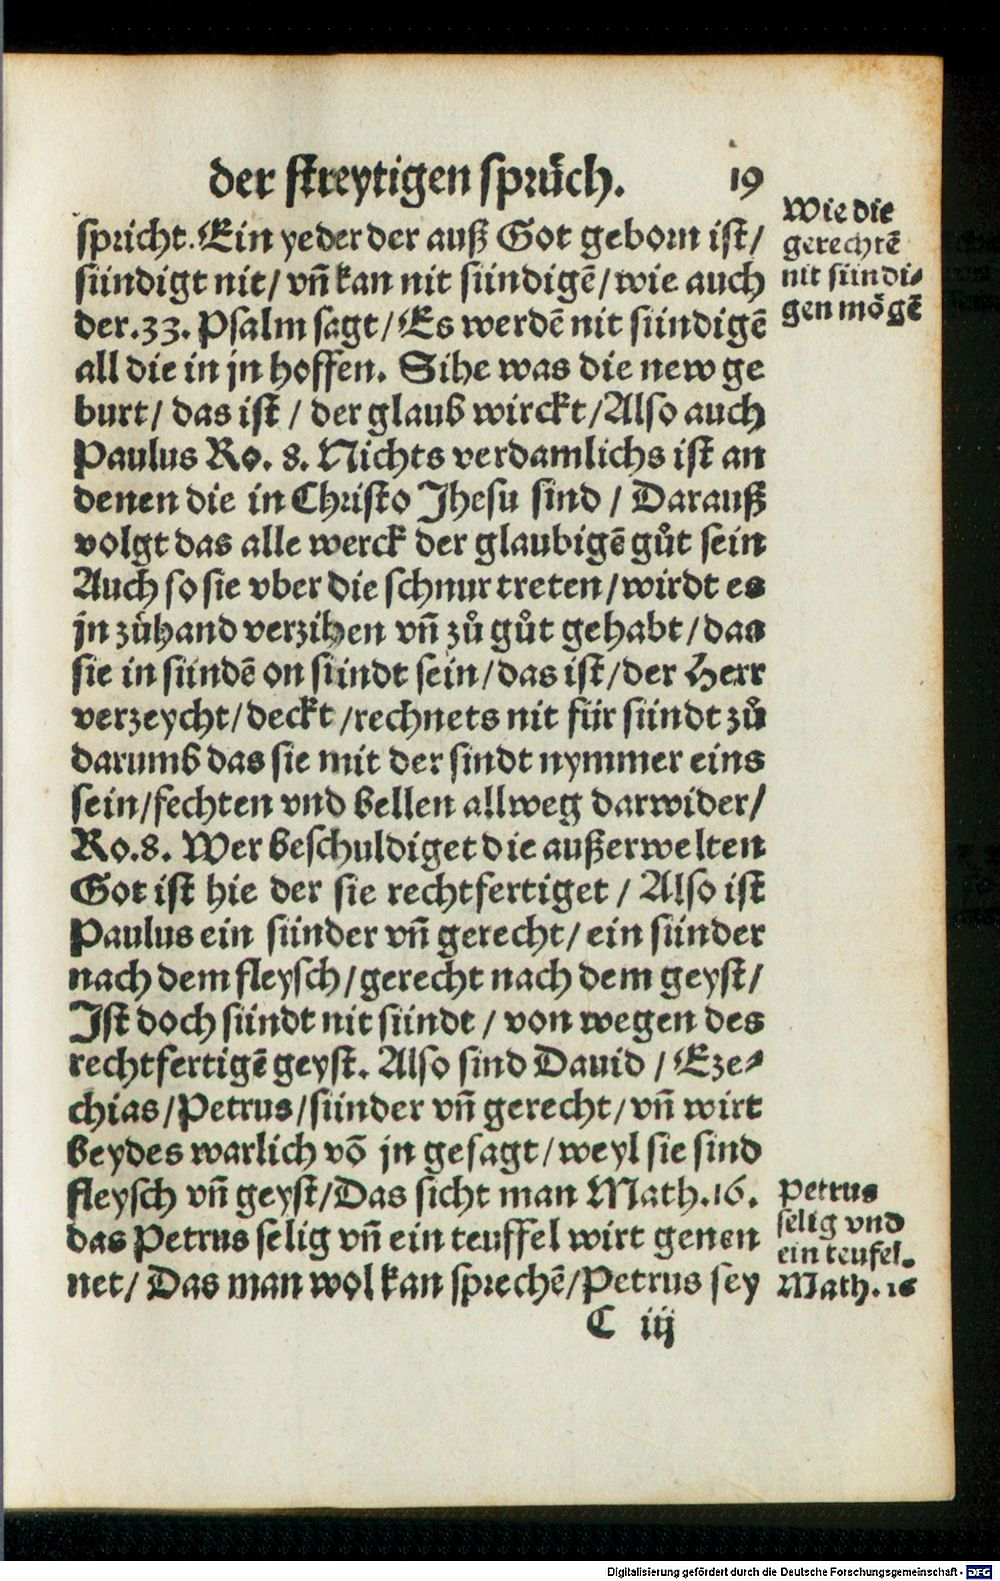 der streytigen sprüch. 19
spricht. Ein yeder der auß Got geborn ist/
sündigt nit/ vñ kan nit sündigẽ/ wie auch
der .33. Psalm sagt/ Es werdẽ nit sündigẽ
all die in jn hoffen. Sihe was die new ge
burt/ das ist/ der glaub wirckt/ Also auch
Paulus Ro. 8. Nichts verdamlichs ist an
denen die in Christo Jhesu sind/ Darauß
volgt das alle werck der glaubigẽ gůt sein
Auch so sie vber die schnur treten/ wirdt es
jn zůhand verzihen vñ zů gůt gehabt/ das
sie in sündẽ on sündt sein/ das ist/ der Herr
verzeycht/ deckt/ rechnets nit für sündt zů
darumb das sie mit der sindt nymmer eins
sein/ fechten vnd bellen allweg darwider/
Ro. 8. Wer beschuldiget die außerwelten
Got ist hie der sie rechtfertiget/ Also ist
Paulus ein sünder vñ gerecht/ ein sünder
nach dem fleysch/ gerecht nach dem geyst/
Ist doch sündt nit sündt/ von wegen des
rechtfertigẽ geyst. Also sind Dauid/ Eze-
chias/ Petrus/ sünder vñ gerecht/ vñ wirt
beydes warlich võ jn gesagt/ weyl sie sind
fleysch vñ geyst/ Das sicht man Math. 16.
das Petrus selig vñ ein teuffel wirt genen
net/ Das man wol kan sprechẽ/ Petrus sey
C iij
Wie die
gerechtẽ
nit sündi-
gen mögẽ
Petrus
selig vnd
ein teufel.
Math. 16
Digitalisierung gefördert durch die Deutsche Forschungsgemeinschaft - DFG